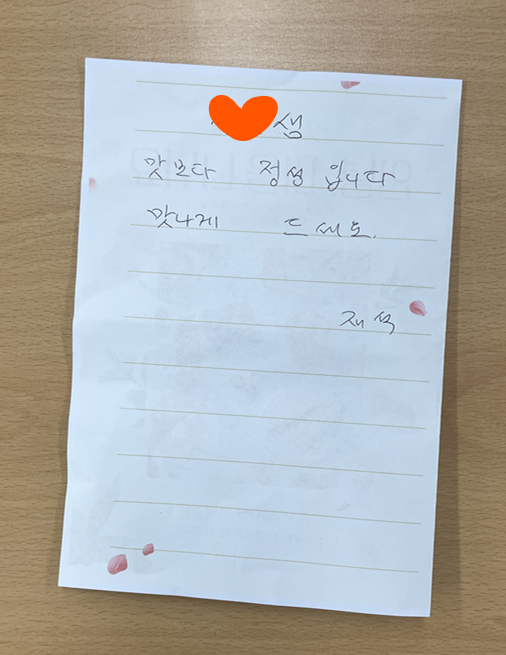 샘
맛보다 정성 입니다
맛나게 드세요.
재석